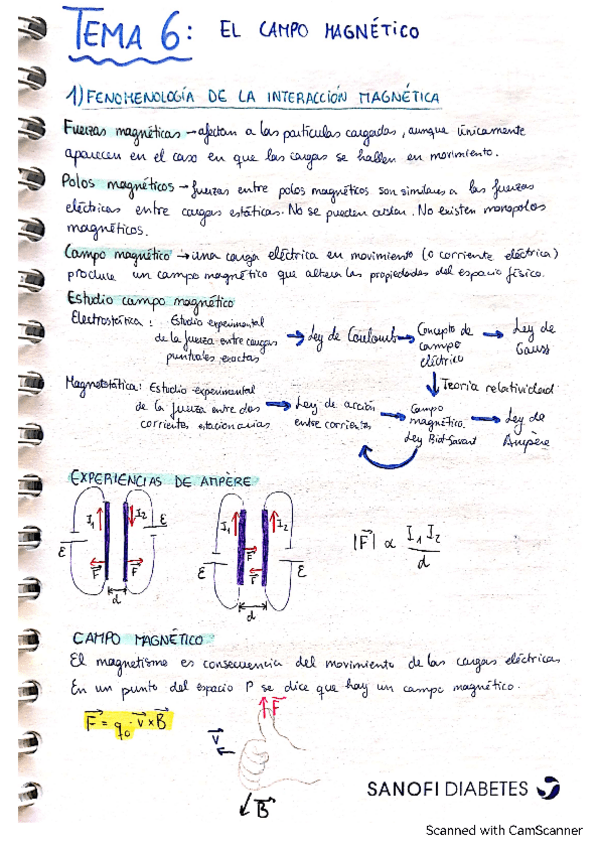 TEMA 6: EL CAMPO MAGNÉTICO
1) FENOMENOLOGÍA DE LA INTERACCIÓN MAGNÉTICA
Fuerzas magnéticas → afectan a las partículas cargadas, aunque únicamente
aparecen en el caso en que las cargas se hallen en movimiento.
Polos magnéticos → fuerzas entre polos magnéticos son similares a las fuerzas
eléctricas entre cargas estáticas. No se pueden aislar. No existen monopolos
magnéticos.
Campo magnético → una carga eléctrica en movimiento (o corriente eléctrica)
produce un campo magnético que altera las propiedades del espacio físico.
Estudio campo magnético
Electrostática: Estudio experimental
de la fuerza entre cargas
puntuales exactas
→ Ley de Coulomb → Concepto de
campo
eléctrico
→ Ley de
Gauss
↓ Teoría relatividad
Magnetostática: Estudio experimental
de la fuerza entre dos
corrientes estacionarias
→ Ley de acción
entre corrientes
→ Campo
magnético.
Ley Biot-Savart
→ Ley de
Ampère
EXPERIENCIAS DE AMPÈRE
I1 I2 ε ε F F d
I1 I2 ε ε F F d
|F⃗| ∝ I1 I2 / d
CAMPO MAGNÉTICO
El magnetismo es consecuencia del movimiento de las cargas eléctricas
En un punto del espacio P se dice que hay un campo magnético.
F⃗ = q₀ · v⃗ × B⃗
F⃗
v⃗
B⃗
SANOFI DIABETES
Scanned with CamScanner